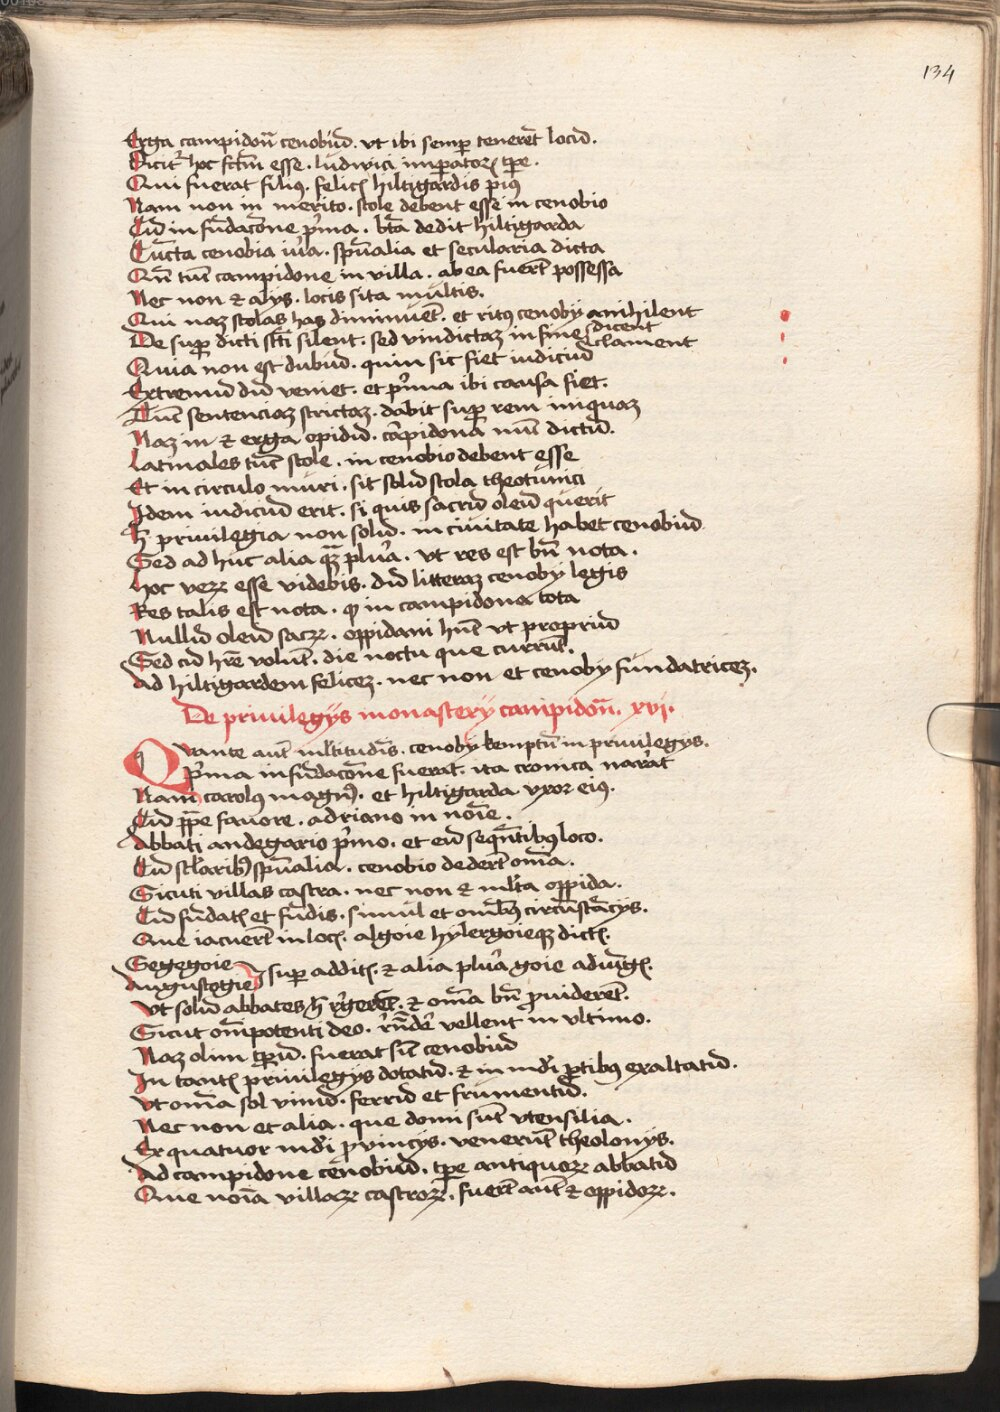 134
Erga campidoñ cenobiū. vt ibi semp̱ tenerēt locū.
Dicit᷑ hoc sctm̄ esse. ludwici imp̱atorꝭ tp̱e.
Qui fuerat filiꝰ. felicꝭ hiltigardis piꝰ
Nam non in merito. scole debent esse in cenobio
Cū in fūdacōne p̓ma. btā dedit hiltigarda
Cūcta cenobia iūa. spūalia et secularia dicta
Qn̄ tūc campidone in villa. ab ea fuerūt possessa
Nec non ⁊ alijs. locis sita multis.
Qui naꝫ scolas has diminuēt. et ritꝰ cenoby anihilent
De sup̱ dicti scti silent. sed vindictaꝫ in fine dicent
clament
Quia non est dubiū. quin sic fiet iudiciū
Extremū dū veniet. et p̓ma ibi causa fiet.
Tūc sentenciaꝫ strictaꝫ. dabit sup̱ rem iniquaꝫ
Naꝫ in ⁊ erga opidū. cāpidona nūc dictū.
Latinales tūc scole. in cenobio debent esse
Et in circulo muri. sit solū scola theotunici
Idem iudiciū erit. si quis sacrū oleū querit
H̄ priuilegia non solū. in ciuitate habet cenobiū
Sed ad huc alia qꝫ plura. vt res est bn̄ nota.
Hoc veꝝ esse videbis. dū litteraꝫ cenoby legis
Res talis est nota. ꝙ in campidona tota
Nullū oleū sacꝝ. oppidani hn̄t vt propriū
Sed cū hr̄e volūt. die noctu que currūt.
Ad hiltigardem feliceꝫ. nec non et cenoby fundatriceꝫ.
De priuilegijs monastery campidoñ. xvj.
Qvante aūt ml̄titudīs. cenoby kemptū in priuilegys.
p̓ma in fūdacōne fuerat. ita cronica narrat
Nam carolꝰ magnꝰ. et hiltigarda vxor eiꝰ.
Cū pp̄e fauore. adriano in noīe.
Abbati andegario p̓mo. et eū seqn̄tibꝰ loco.
Cū sclaribꝰ spūalia. cenobio dederūt om̄ia.
Sicuti villas castra. nec non ⁊ ml̄ta oppida.
Cū fūdatꝭ et fūdis. simul et om̄ibꝰ circūstācijs.
Que iacuerūt in locꝭ. algoie hylergoieqꝫ dictꝭ.
Gegegoie
Augustogie sup̱ additꝭ. ⁊ alia plura goie adiūgꝭ.
Vt solū abbates h̄ rigerēt. ⁊ om̄ia bn̄ ꝓuiderēt.
Sicut om̄ipotenti deo. rn̄dē vellent in vltimo.
Naꝫ olim tp̱ū. fuerat sūt cenobiū
In tantꝭ priuilegijs dotatū. ⁊ in mūdi p̱tibꝰ exaltatū.
Vt om̄a sol vinū. ferrū et frumentū.
Nec non et alia. que domi sūt vtensilia.
Ex quatuor mūdi ꝓvincijs. venerūt theolonys.
Ad campidone cenobiū. tp̱e antiquoꝝ abbatū
Que noīa villaꝝ castroꝝ. fuerūt aūt ⁊ oppidoꝝ.